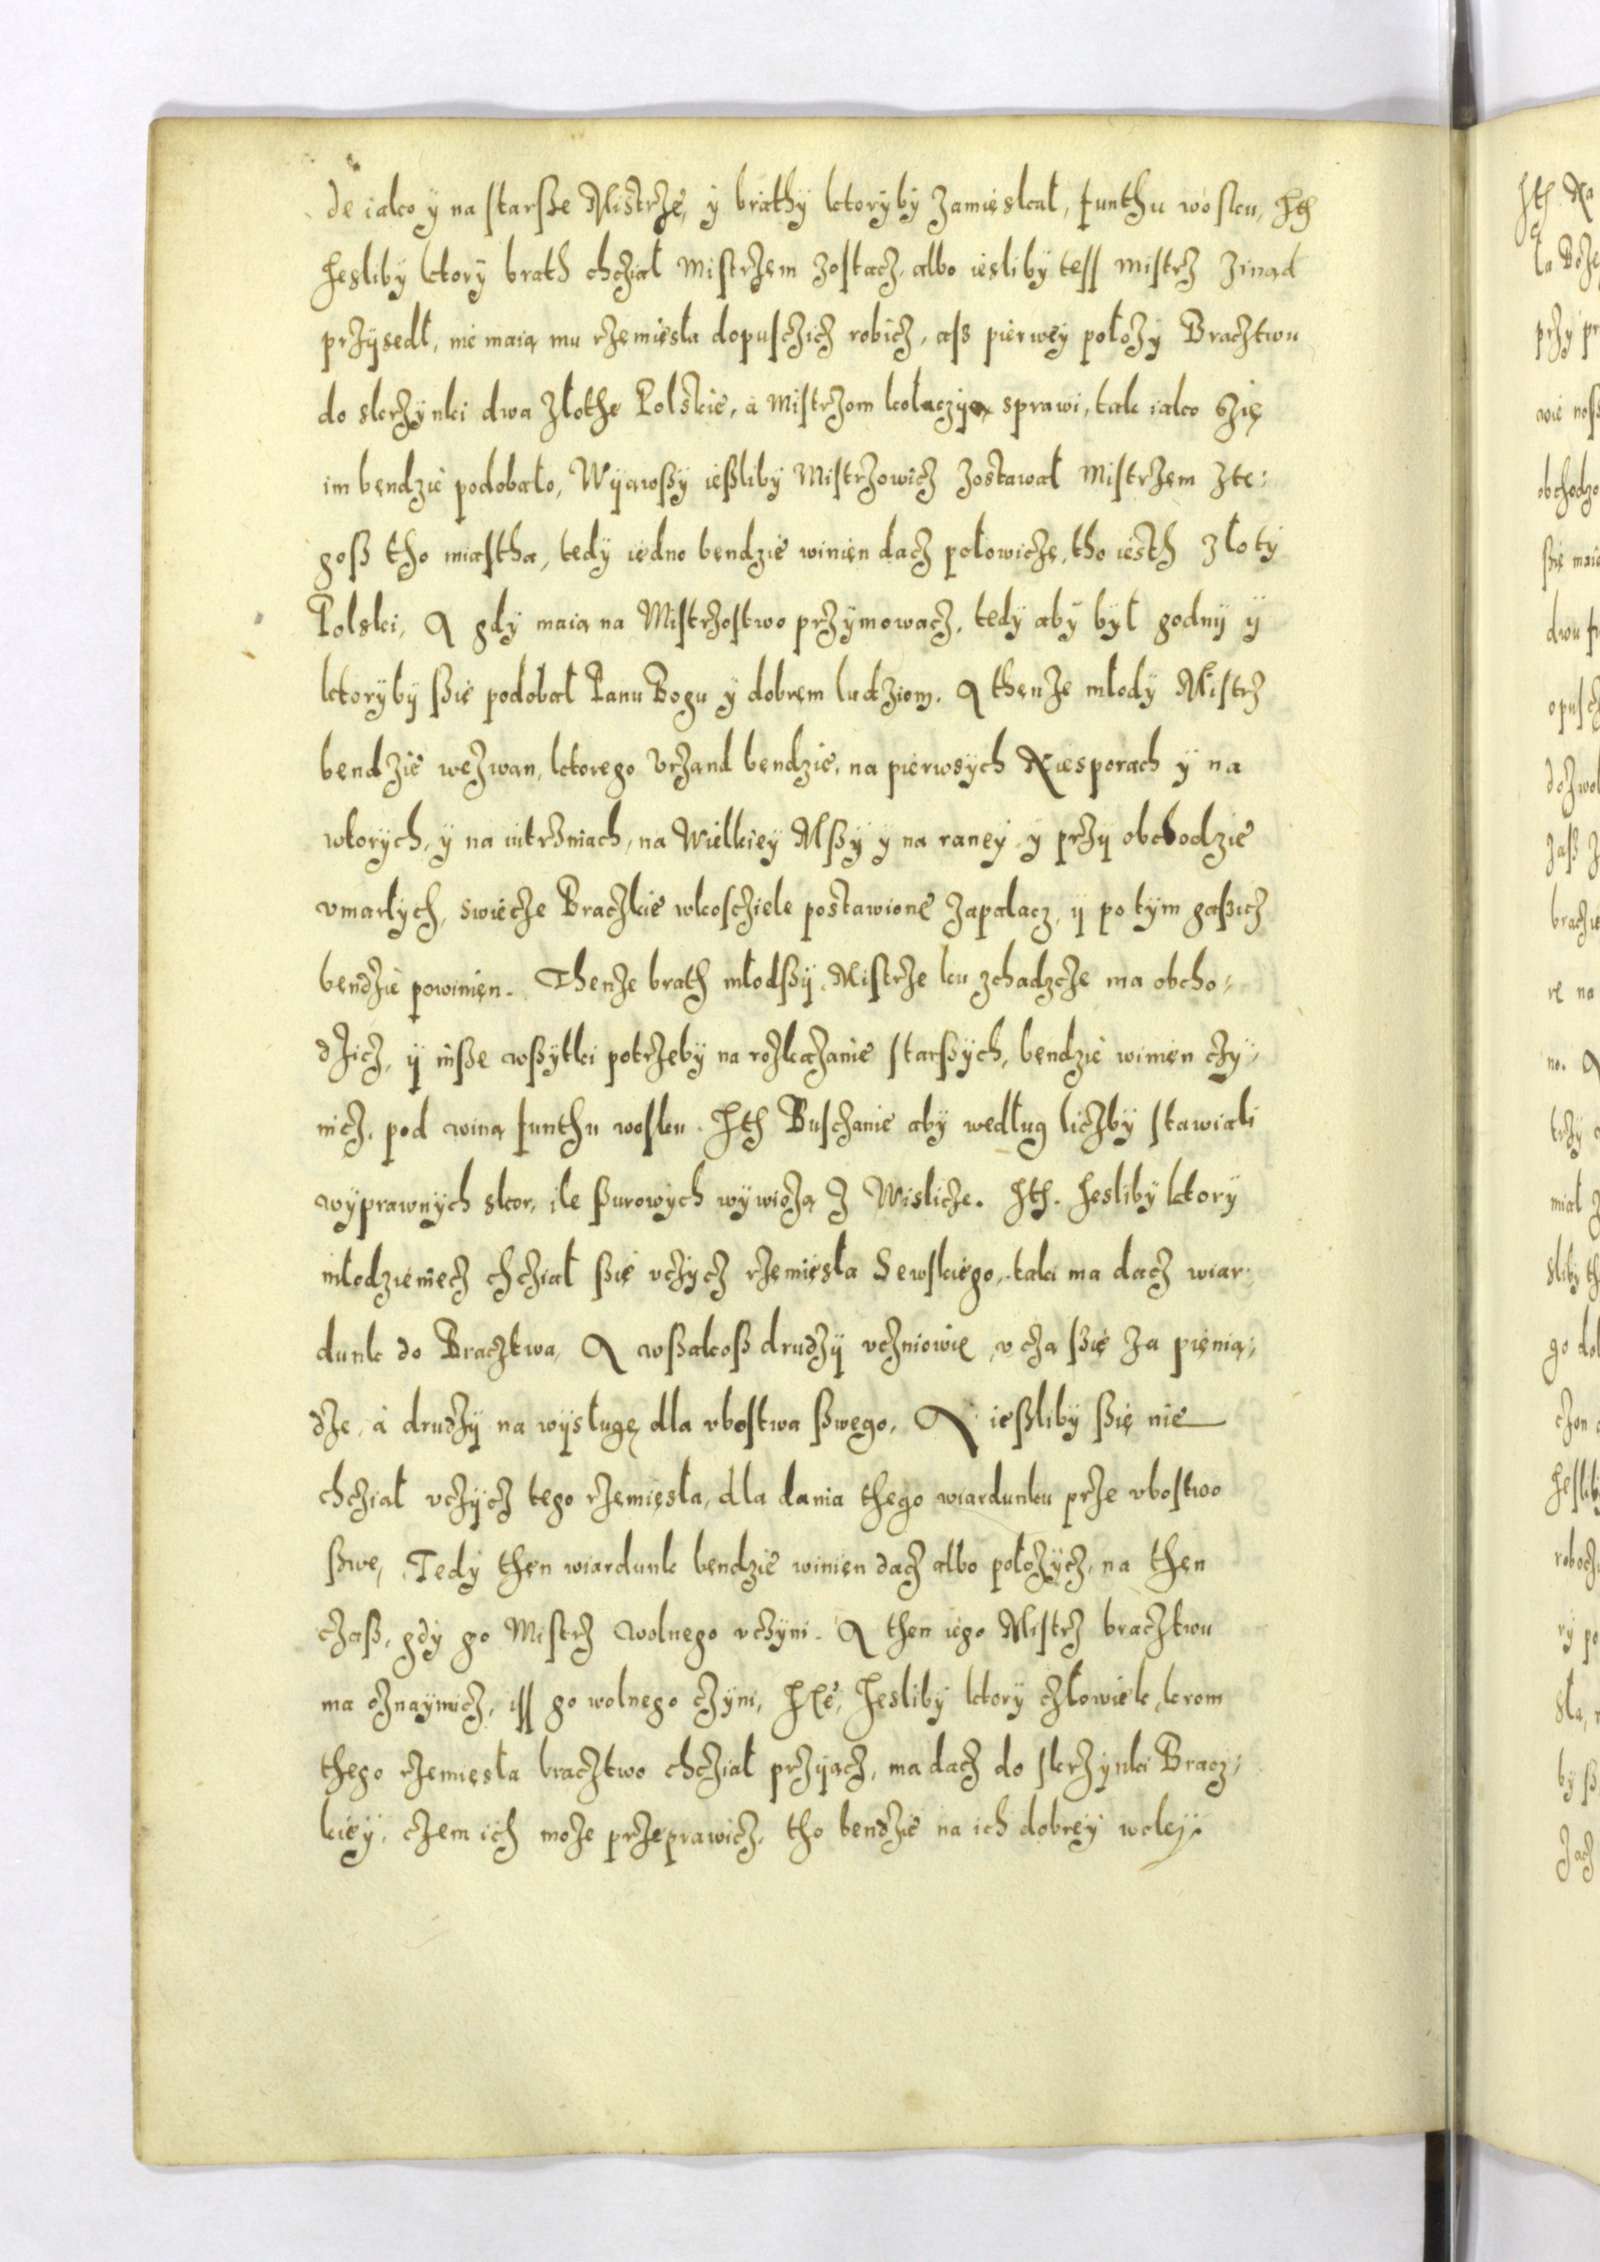 de iako y na starße Mistrze, y brathÿ ktorÿbÿ zamięskał, funthu wosku, Ith
Jesliby ktorÿ brath chcział Mistrzem zostacz, albo iesliby tess mistrz zinąd
przÿsedł, nie maią mu rzemięsła dopusczicz robicz, asz pierwey położÿ Bracztwu
do skrzÿnki dwa złothe Polskie, a Mistrzom kolaczÿą sprawi, tak iako się
im bendzie podobało, Wÿąwßÿ ießliby Mistrzowicz zostawał Mistrzem zte:
goß tho miastha, tedÿ iedno bendzie winien dacz połowicze, tho iesth złotÿ
Polski, A gdÿ maią na Mistrzostwo przÿmowacz, tedy abÿ bÿł godnÿ ÿ
ktorÿbÿ ßie podobał Panu Bogu ÿ dobrem ludziom. A thenze młodÿ Mistrz
bendzie wezwan, ktorego Vrzand bendzie, na pierwsÿch Niesporach ÿ na
wtorÿch, ÿ na iutrzniach, na Wielkieÿ Mßÿ ÿ na raneÿ ÿ przÿ obchodzie
vmarłÿch, swiecze Braczkie wkoscziele postawione zapalacz, ÿ po tÿm gaßicz
bendzie powinien. Thenze brath młodßÿ Mistrze ku zchadzcze ma obcho:
dzicz, ÿ inße wßÿtki potrzebÿ na rozkazanie starßÿch, bendzie winien czÿ:
nicz, pod winą funthu wosku. Ith Busczanie abÿ według liczbÿ stawiali
wÿprawnÿch skor, ile ßurowÿch wÿwiozą z Wislicze. Ith. Jeslibÿ ktorÿ
młodzieniecz chcział ßię vczÿcz rzemięsła Sewskiego, taki ma dacz wiar:
dunk do Bracztwa, A wßakoß drudzÿ vczniowie vczą ßię za pienią:
dze, a drudzÿ na wÿsługę dla vbostwa ßwego, A ießliby ßię nie
chcział vczÿcz tego rzemięsła, dla dania thego wiardunku prze vbostwo
ßwe, Tedÿ then wiardunk bendzie winien dacz albo położÿcz, na then
czaß, gdÿ go Mistrz wolnego vczÿni. A then iego Mistrz bracztwu
ma oznaÿmicz, iss go wolnego czÿni, Jeslibÿ ktorÿ człowiek, krom
thego rzemięsła bracztwo chcział przÿiącz, ma dacz do skrzÿnki Bracz:
kieÿ, czem ich moze przeprawicz, tho bendzie na ich dobreÿ woleÿ.